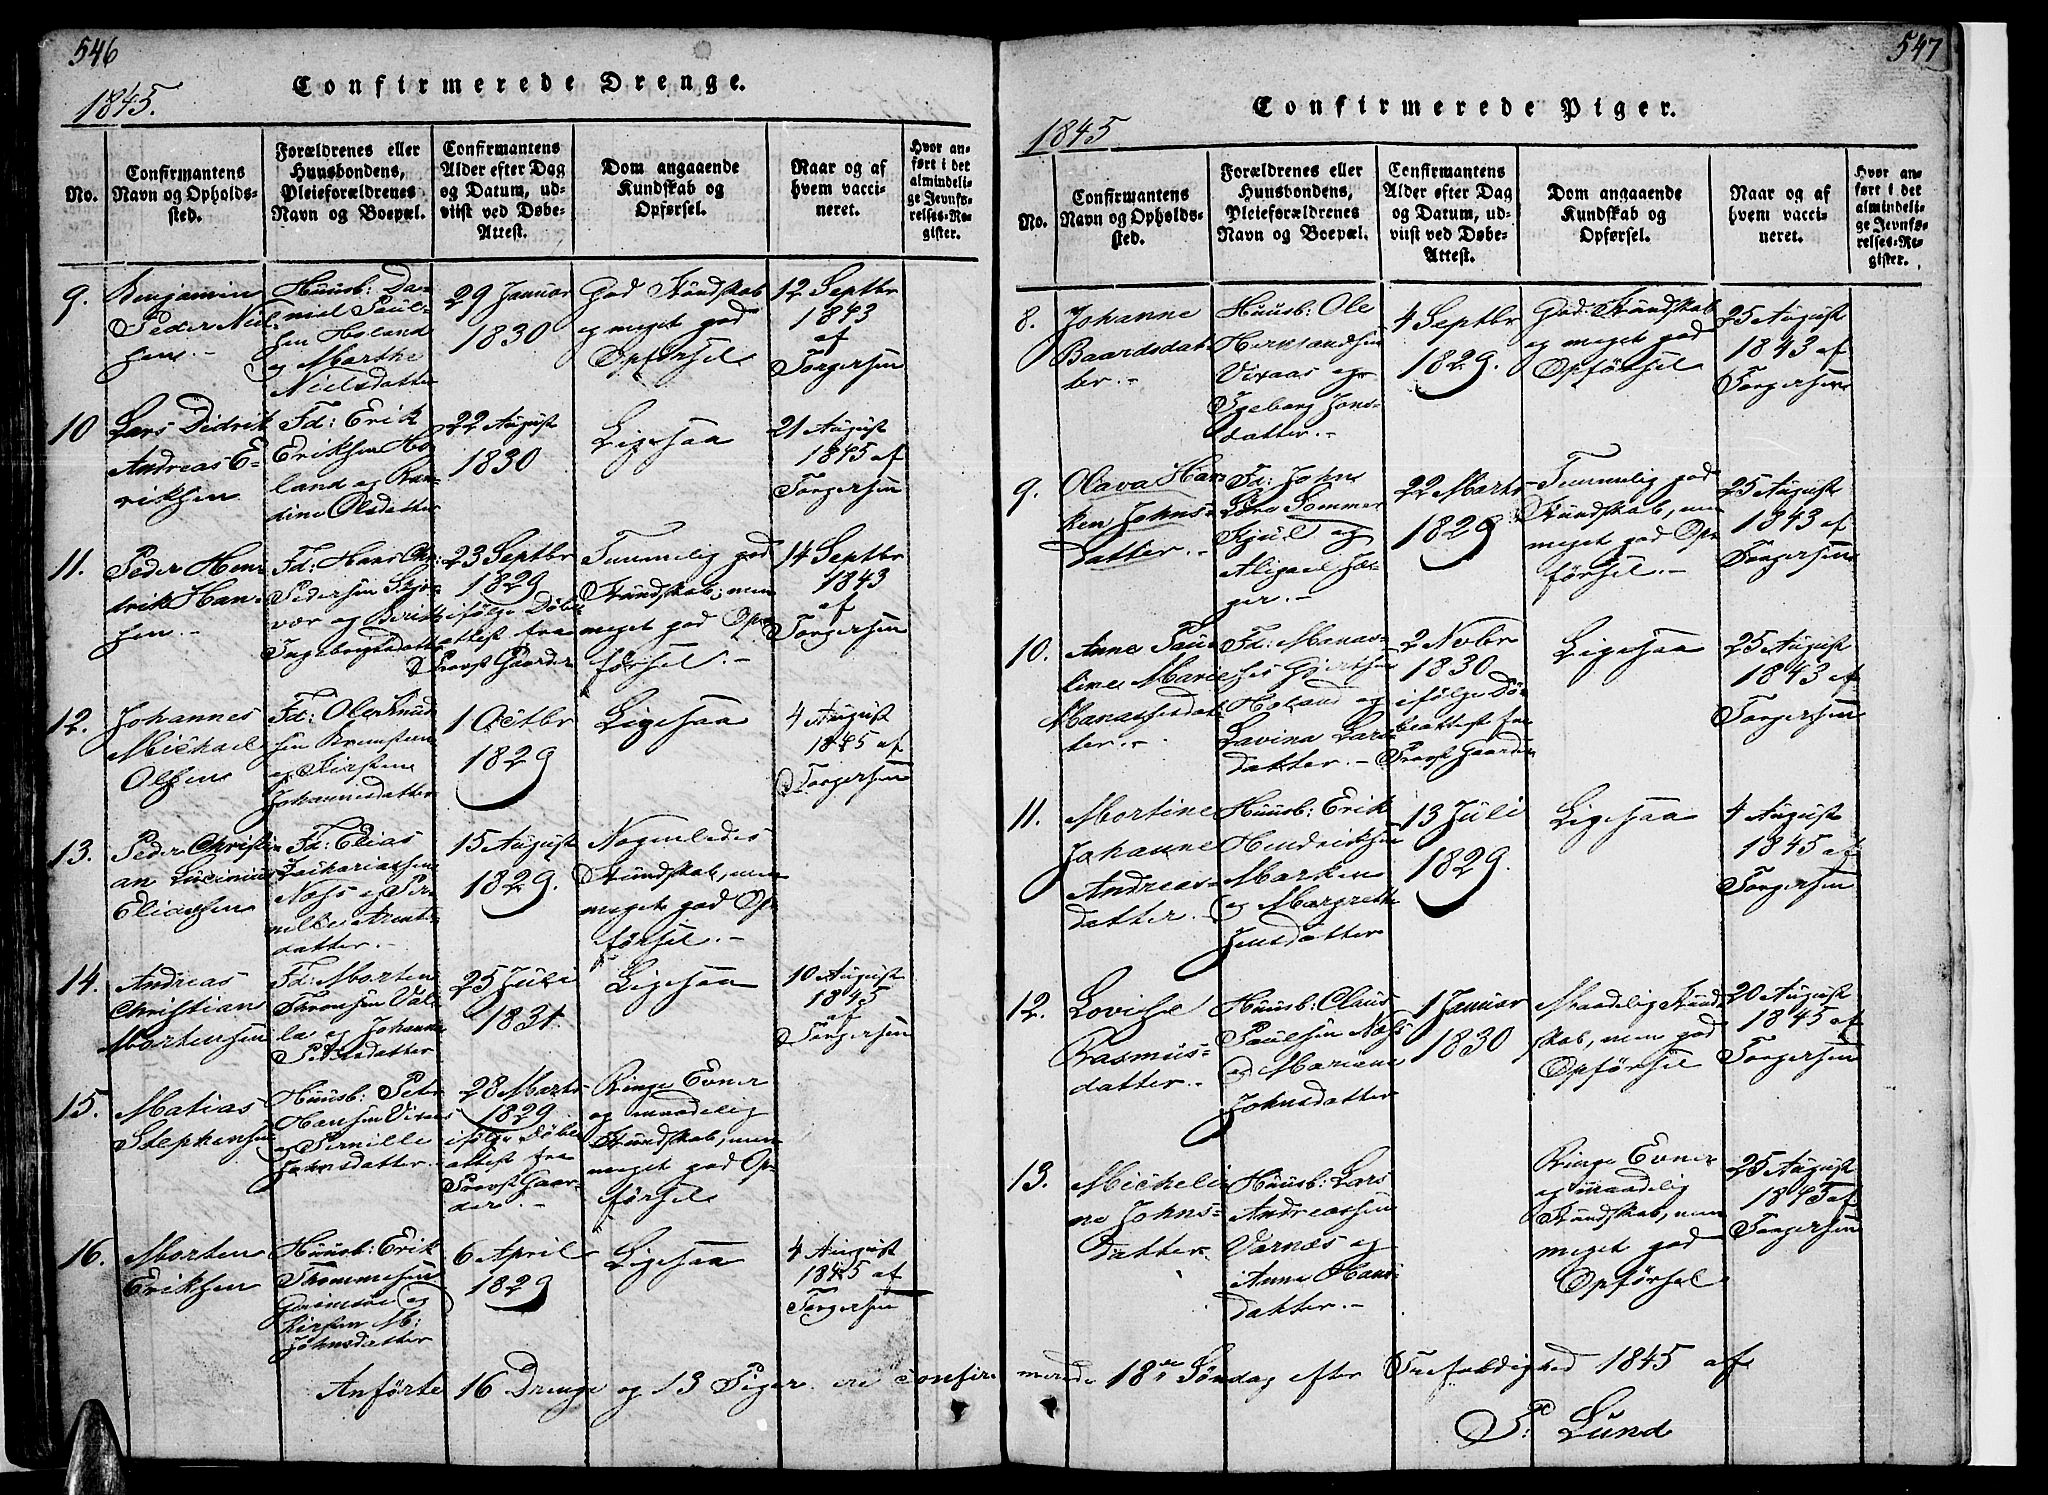 546
Confirmerede Drenge.
1845.
No.
Confirmantens
Navn og Opholds-
sted.
Forældrenes eller
Huusbondens,
Pleieforældrenes
Navn og Boepæl.
Confirmantens
Alder efter Dag
og Datum, ud-
viist ved Døbe-
Attest.
Dom angaaende
Kundskab og
Opførsel.
Naar og af
hvem vacci-
neret.
Hvor an-
ført i det
almindeli-
ge Jevnfø-
relses-Re-
gister.
9.
Benjamin
Peder Niel-
sen.-
Huusb: Da-
niel Paul-
sen Holand
og Marthe
Nielsdatter
29 Januar
1830
God Kundskab
og meget god
Opførsel
12 Septbr
1843
af
Torgersen
10
Lars Didrik
Andreas E-
riksen
Fd: Erik
Eriksen Ho-
land og Ran-
dine Olsdatter
22 August
1830
Ligesaa
21 August
1845 af
Torgersen
11.
Peder Hen-
drik Han-
sen.-
Fd: Hans Chr:
Pedersen
vær og Berith
Ingebrigtsdatter
23 Septbr
1829
ifølge Døbe-
attest fra
Provst Gaarder
Temmelig god
Kundskab, men
meget god Op-
førsel.-
14 Septbr
1843
af
Torgersen
12.
Johannes
Michael
Olsen
Fd: Ole Knud-
sen
og Kirsten
Johannisdatter
1 Octbr
1829
Ligesaa
4 August
1845 af
Torgersen
13.
Peder Christi-
an
Eliassen
Fd: Elias
Zachariassen
Næss og Per-
nille Arent-
datter.-
15 August
1829.
Nogenledes
Kundskab, men
meget god Op-
førsel.-
14.
Andreas
Christian
Mortensen
Fd: Morten
Thomsen Val-
la og Johanna
Pedersdatter
25 Juli
1831.
Ligesaa
10 August
1845
af
Torgersen
15.
Matias
Stephensen
Huusb: Peter
Hansen
og Pernille
Johnsdatter.
28 Marts
1829
ifølge Døbe
attest fra
Provst Gaar-
der.-
Ringe Evner
og maadelig
Kundskab, men
meget god Op-
førsel
16.
Morten
Eriksen
Huusb: Erik
Thommesen
og
Kirsten M:
Johnsdatter
6 April
1829
Ligesaa
4 August
1845 af
Torgersen
547
Confirmerede Piger.
1845
No.
Confirmantens
Navn og Opholds-
sted.
Forældrenes eller
Huusbondens,
Pleieforældrenes
Navn og Boepæl.
Confirmantens
Alder efter Dag
og Datum, ud-
viist ved Døbe-
Attest.
Dom angaaende
Kundskab og
Opførsel.
Naar og af
hvem vacci-
neret.
Hvor an-
ført i det
almindeli-
ge Jevnfø-
relses-Re-
gister.
8.
Johanne
Baardsdat-
ter.-
Huusb: Ole
Hernlandsen
Vixaas og
Igeborg Jons-
datter.-
4 Septbr
1829.
God Kundskab
og meget god
Opførsel
25 August
1843 af
Torgersen
9.
Olava Han
ken Johns-
datter.-
Fd: John
Sommer
og
Aligael Hol-
ger.-
22 Marts
1829
Temmelig god
Kundskab, men
meget god Op-
førsel.-
25 August
1843 af
Torgersen
10.
Anne Pau-
line Marie
Manassesdat-
ter.-
Fd: Manas-
ses Gjertsen
Holand og
Lavina Lars-
datter.-
2 Novbr
1830
ifølge Dø-
beattest fra
Provst Gaarder
Ligesaa
25 August
1843 af
Torgersen
11.
Mortine
Johanne
Andreas-
datter.-
Huusb: Erik
Hendriksen
Marken
og Margrethe
Jensdatter
13 Juli
1829.
Ligesaa
4 August
1845 af
Torgersen
12.
Lovise
Rasmus-
datter.-
Huusb: Claus
Paulsen Næss
og Mariane
Johnsdatter
1 Januar
1830
Maadelig Kund-
skab, men god
Opførsel
20 August
1845 af
Torgersen
13.
Micheli-
ne Johns-
datter.
Huusb: Lars
Andreassen
Varnæs og
Anne Hans-
datter.-
Ringe Evner
og maadelig
Kundskab, men
meget god
Opførsel
25 August
1843 af
Torgersen
Anførte 16 Drenge og 13 Piger ere confirmerede 18de Søndag efter Trefoldighed 1845 af
P: Lund